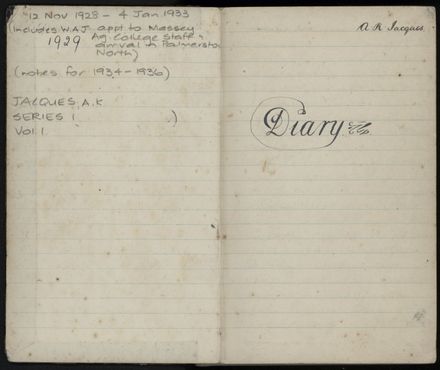 12 Nov 1928 - 4 Jan 1933
(includes W.A.J appt to Massey
1929 Ag College Staff &
arrival in Palmerston
North)
(notes for 1934-1936)
JACQUES, A.K
SERIES 1 )
Vol 1
A. K. Jacques
Diary